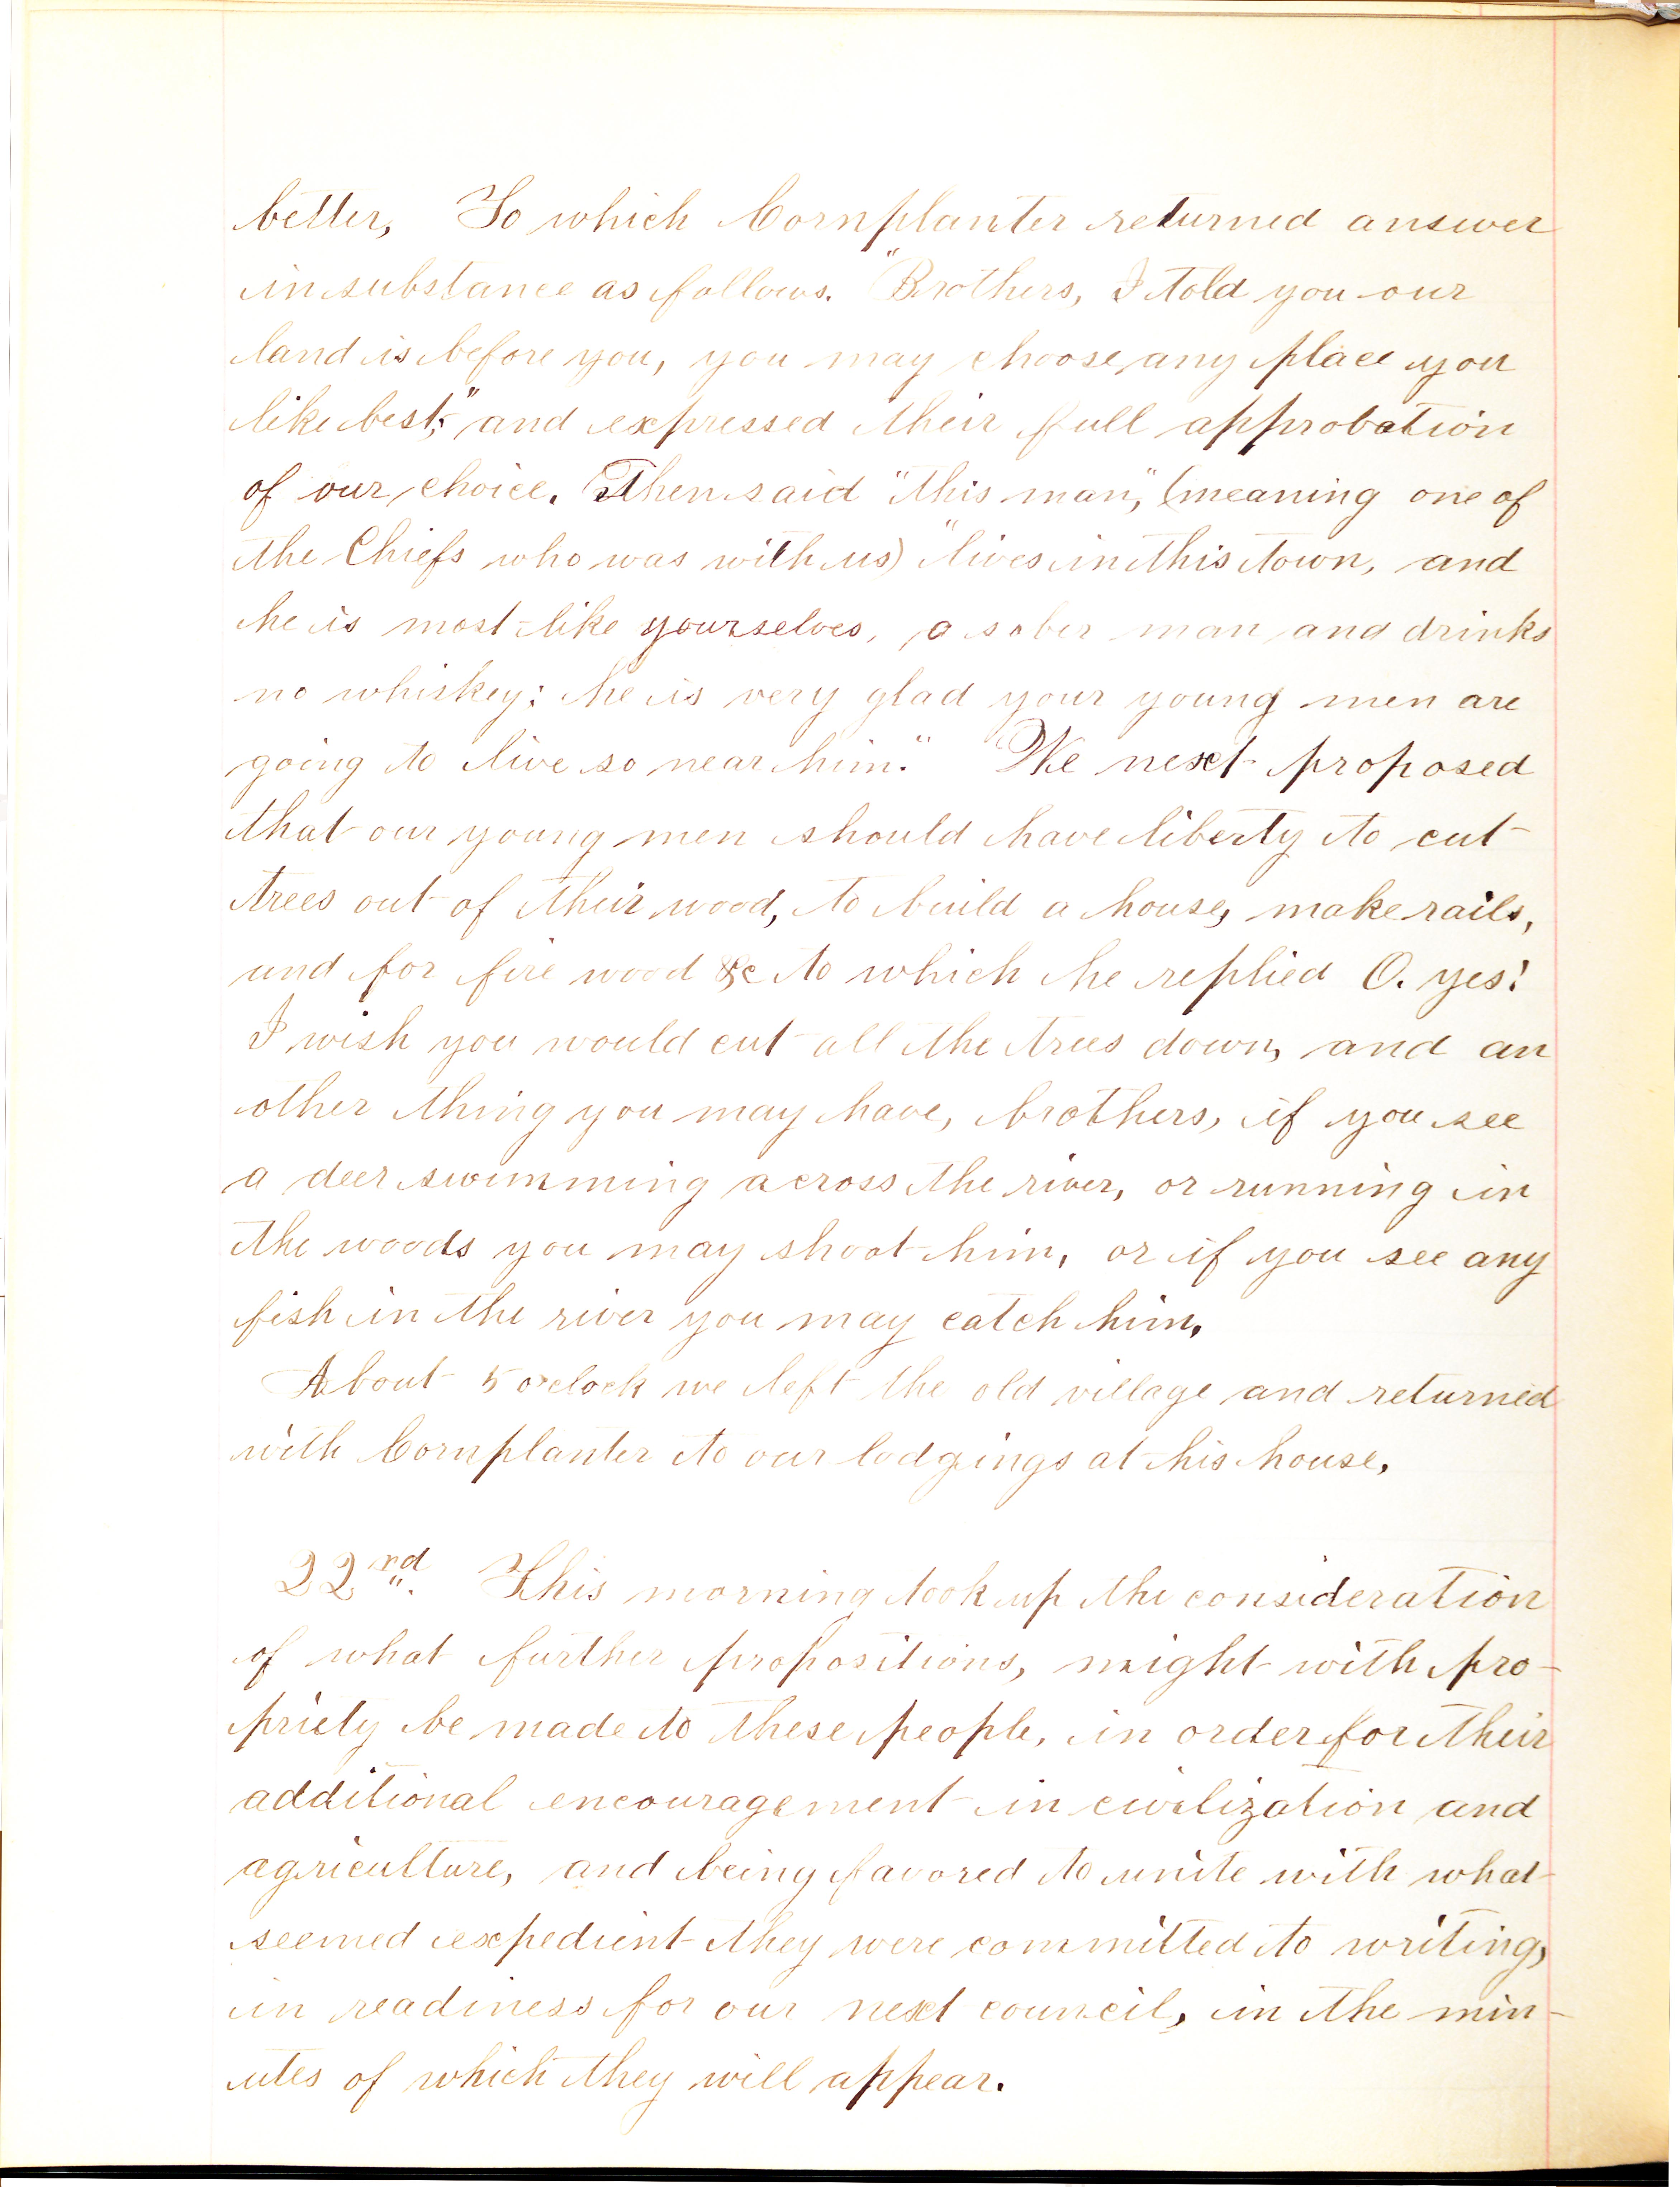 better, To which Cornplanter returned answer
in substance as follows. "Brothers, I told you our
land is before you, you may choose any place you
like best;" and expressed their full approbation
of our choice. Then said "this man," (meaning one of
the Chiefs who was with us) "lives in this town, and
he is most like yourselves, a sober man and drinks
no whiskey: he is very glad your young men are
going to live so near him." "We next proposed
that our young men should have liberty to cut
trees out of their wood, to build a house, make rails,
and for fire wood &c to which he replied O. yes!
I wish you would cut all the trees down, and an
other thing you may have, brothers, if you see
a deer swimming across the river, or running in
the woods you may shoot him, or if you see any
fish in the river you may catch him.
About 5 o'clock we left the old village and returned
with Cornplanter to our lodgings at his house.
22nd". This morning took up the consideration
of what further propositions, might with pro-
priety be made to these people, in order for their
additional encouragement in civilization and
agriculture, and being favored to unite with what
seemed expedient they were committed to writing,
in readiness for our next council, in the min-
utes of which they will appear.